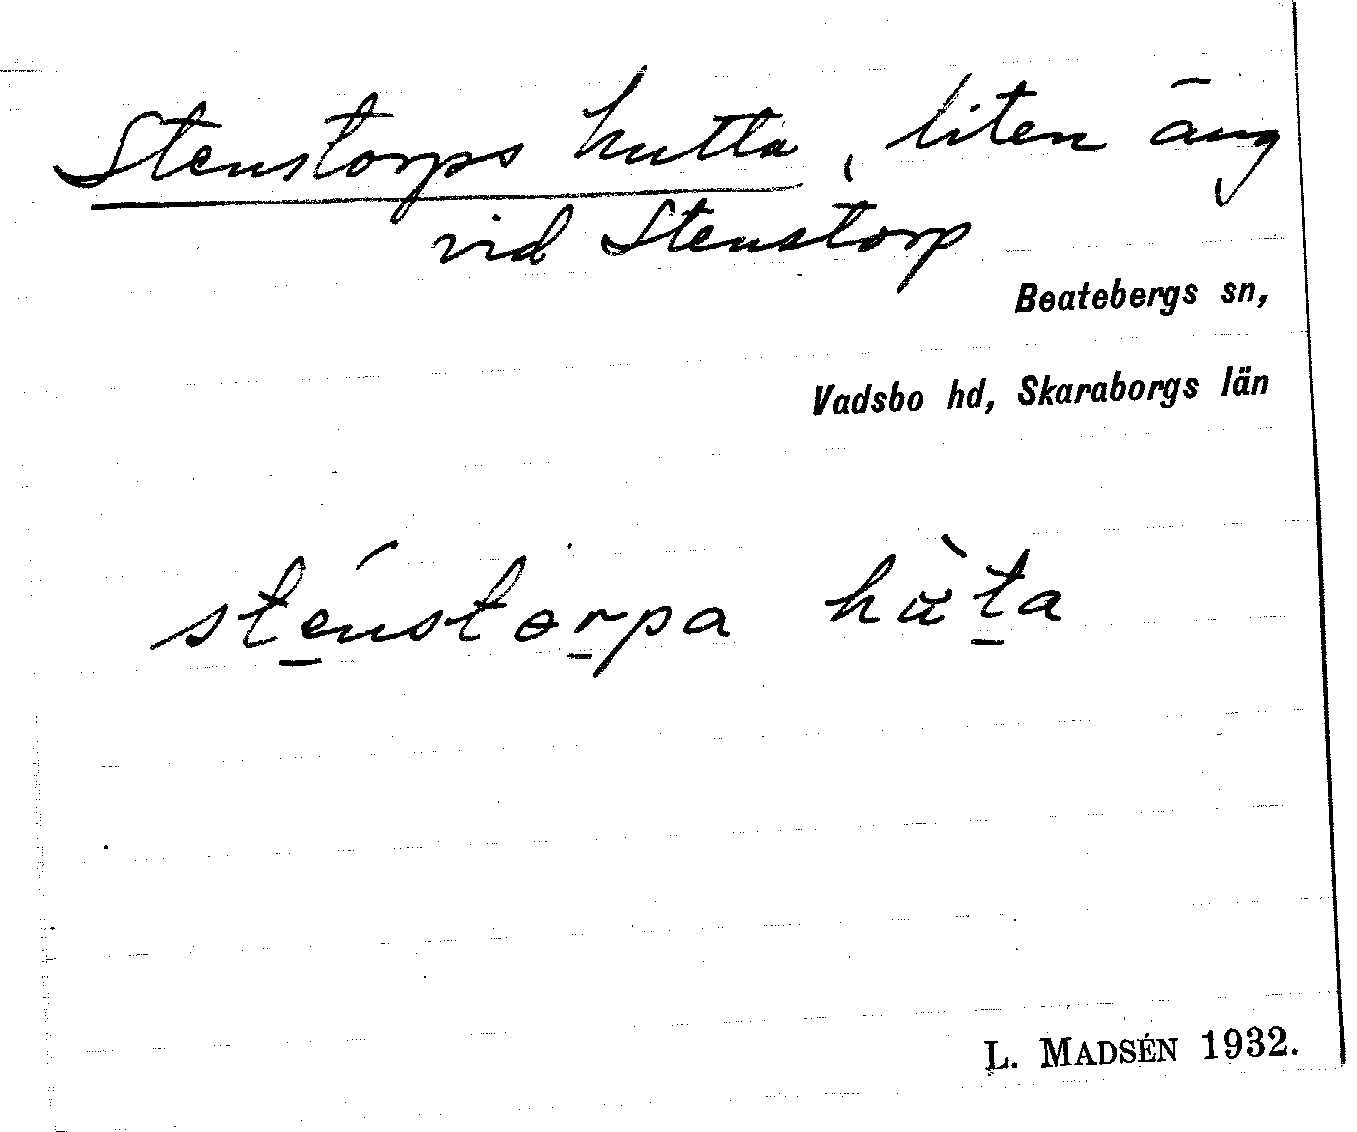 Stenstorps hutta, liten äng
vid Stenstorp
Beatebergs sn,
Vadsbo hd, Skaraborgs län
sténstərpa hàta
L. MADSÉN 1932.